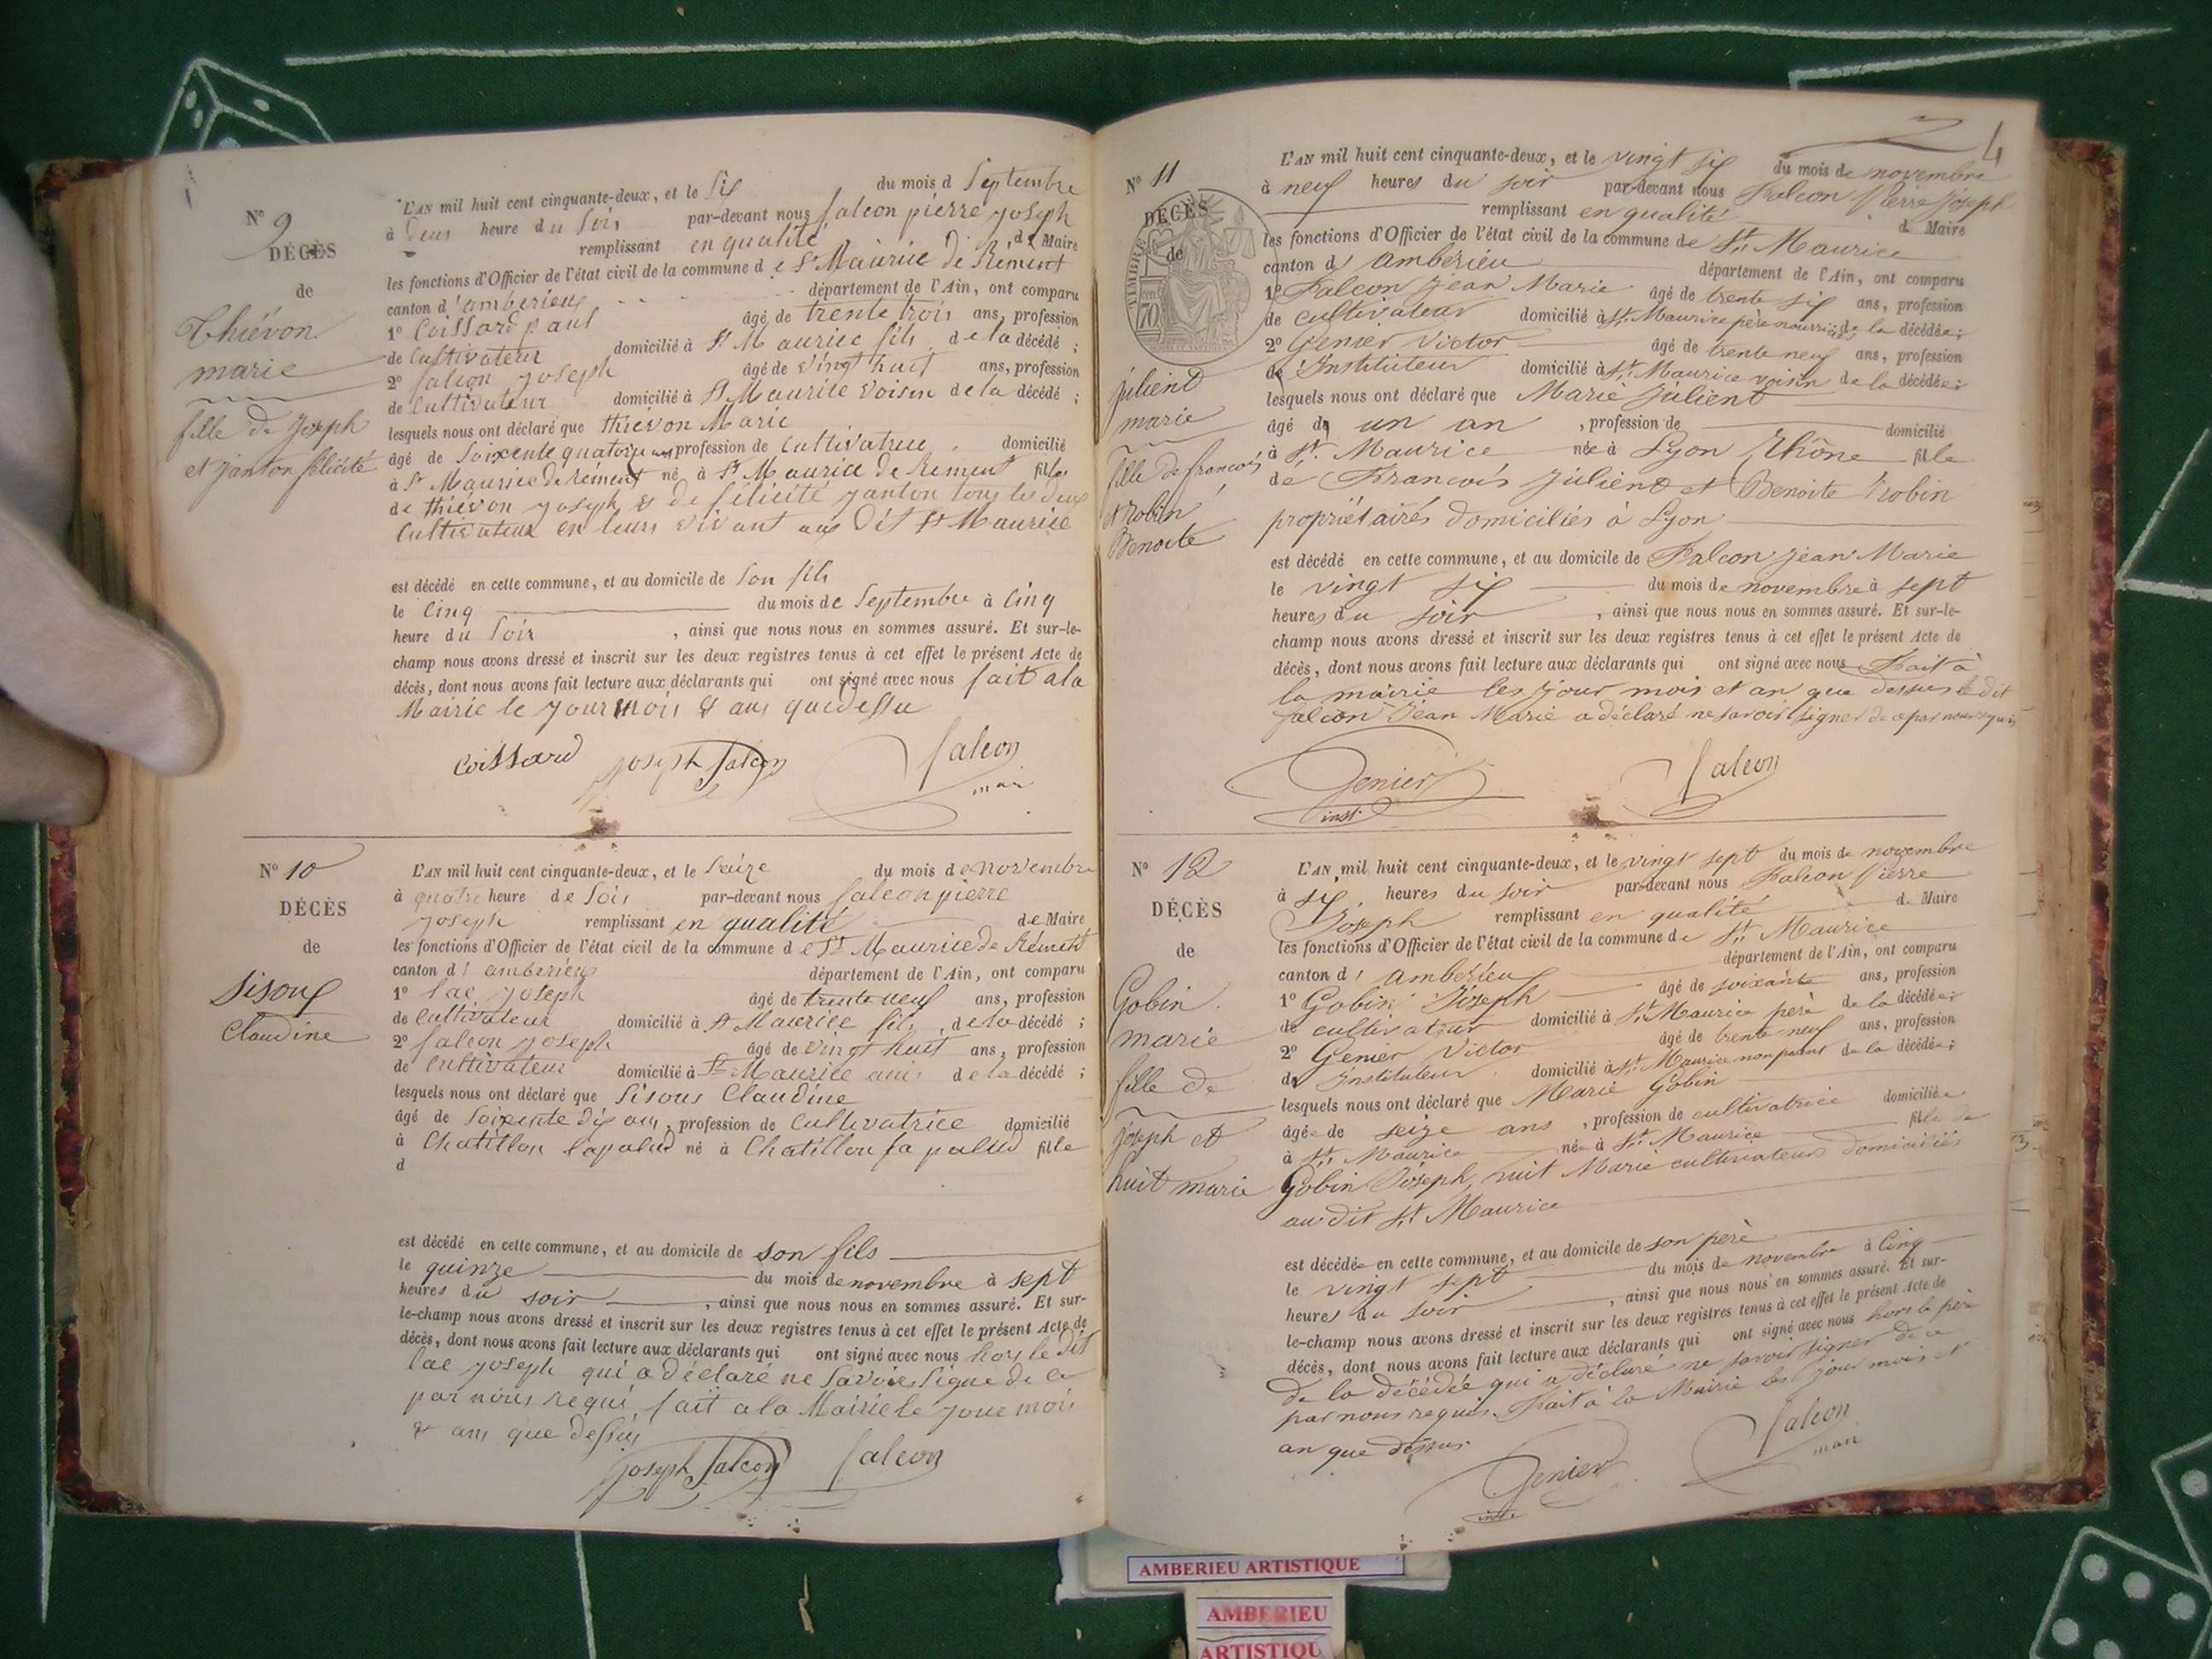 N° 9
DÉCÈS
de
Thiévon
marie
fille de Joseph
et Janton félicité
L'AN mil huit cent cinquante-deux, et le six du mois d Septembre
à deux heure du Soir par-devant nous falcon pierre joseph
remplissant en qualité d e Maire
les fonctions d'Officier de l'état civil de la commune d e St Maurice de Rement
canton d'amberieux département de l'Ain, ont comparu
1° Coissard paul âgé de trente trois ans, profession
de Cultivateur domicilié à St Maurice fils de la décédé ;
2° falcon joseph âgé de vingt huit ans, profession
de Cultivateur domicilié à St Maurice voisin de la décédé ;
lesquels nous ont déclaré que thiévon Marie
âgé de Soixente quatorze ans profession de Cultivatrice domicilié
à St Maurice de rément né à St Maurice de Rement fille
de thiévon joseph & de félicité janton tous les deux
Cultivateur en leurs vivant aux dit St Maurice
est décédé en cette commune, et au domicile de Son fils
le Cinq du mois de Septembre à Cinq
heure du Soir , ainsi que nous nous en sommes assuré. Et sur-le-
champ nous avons dressé et inscrit sur les deux registres tenus à cet effet le présent Acte de
décès, dont nous avons fait lecture aux déclarants qui ont signé avec nous fait a la
Mairie le jour mois & ans que dessu
Coissard joseph falcon falcon
mair
N° 10
DÉCÈS
de
Sisoux
Claudine
L'AN mil huit cent cinquante-deux, et le Seize du mois de novembre
à quatre heure de Soir par-devant nous falcon pierre
joseph remplissant en qualité de Maire
les fonctions d'Officier de l'état civil de la commune d e St Maurice de Rément
canton d' amberieux département de l'Ain, ont comparu
1° lac joseph âgé de trente neuf ans, profession
de Cultivateur domicilié à St Maurice fils de la décédé ;
2° falcon joseph âgé de vingt huit ans, profession
de Cultivateur domicilié à St Maurice ami de la décédé ;
lesquels nous ont déclaré que Sisoux Claudine
âgé de Soixente dix ans, profession de Cultivatrice domicilié
à Chatillon lapalud né à Chatillon la palud fille
d
est décédé en cette commune, et au domicile de son fils
le quinze du mois de novembre à sept
heures du soir , ainsi que nous nous en sommes assuré. Et sur-
le-champ nous avons dressé et inscrit sur les deux registres tenus à cet effet le présent Acte de
décès, dont nous avons fait lecture aux déclarants qui ont signé avec nous hors le dit
lac joseph qui a déclaré ne Savoir Signe de ce
par nous requi fait a la Mairie le jour mois
& ans que dessus
joseph falcon falcon
4
N° 11
DÉCÈS
de
TIMBRE
70
julient
marie
fille de françois
et robin
Benoite
L'AN mil huit cent cinquante-deux, et le vingt six du mois de novembre
à neuf heures du soir par-devant nous Falcon Pierre Joseph
remplissant en qualité d. Maire
les fonctions d'Officier de l'état civil de la commune de St. Maurice
canton d' Ambérieu département de l'Ain, ont comparu
1° Falcon Jean Marie âgé de trente six ans, profession
de cultivateur domicilié à St. Maurice père nourricier de la décédée ;
2° Genier Victor âgé de trente neuf ans, profession
de Instituteur domicilié à St. Maurice voisin de la décédée ;
lesquels nous ont déclaré que Marie Julient
âgé de un an , profession de domicilié
à St. Maurice née à Lyon Rhône fille
de François Julient et Benoite Robin
propriétaires domiciliés à Lyon
est décédé en cette commune, et au domicile de Falcon Jean Marie
le vingt six du mois de novembre à sept
heures du soir , ainsi que nous nous en sommes assuré. Et sur-le-
champ nous avons dressé et inscrit sur les deux registres tenus à cet effet le présent Acte de
décès, dont nous avons fait lecture aux déclarants qui ont signé avec nous Fait à
la mairie les jour mois et an que dessus le dit
falcon Jean Marie a déclaré ne savoir signer de ce par nous requis
Genier falcon
inst.
N° 12
DÉCÈS
de
Gobin
marie
fille de
joseph et
huit marie
L'AN mil huit cent cinquante-deux, et le vingt sept du mois de novembre
à six heures du soir par-devant nous Falcon Pierre
Joseph remplissant en qualité d. Maire
les fonctions d'Officier de l'état civil de la commune de St. Maurice
canton d' Ambérieu département de l'Ain, ont comparu
1° Gobin Joseph âgé de soixante ans, profession
de cultivateur domicilié à St. Maurice père de la décédée ;
2° Genier Victor âgé de trente neuf ans, profession
de Instituteur domicilié à St. Maurice non parent de la décédée ;
lesquels nous ont déclaré que Marie Gobin
âgée de seize ans , profession de cultivatrice domiciliée
à St. Maurice née à St. Maurice fille de
Gobin Joseph, huit Marie cultivateurs domiciliés
au dit St. Maurice
est décédée en cette commune, et au domicile de son père
le vingt sept du mois de novembre à Cinq
heures du soir , ainsi que nous nous en sommes assuré. Et sur-
le-champ nous avons dressé et inscrit sur les deux registres tenus à cet effet le présent Acte de
décès, dont nous avons fait lecture aux déclarants qui ont signé avec nous hors le père
de la décédée qui a déclaré ne savoir signer de ce
par nous requis. Fait à la Mairie les jour mois et
an que dessus
Genier falcon
inst. mair
AMBERIEU ARTISTIQUE
AMBERIEU
ARTISTIQU